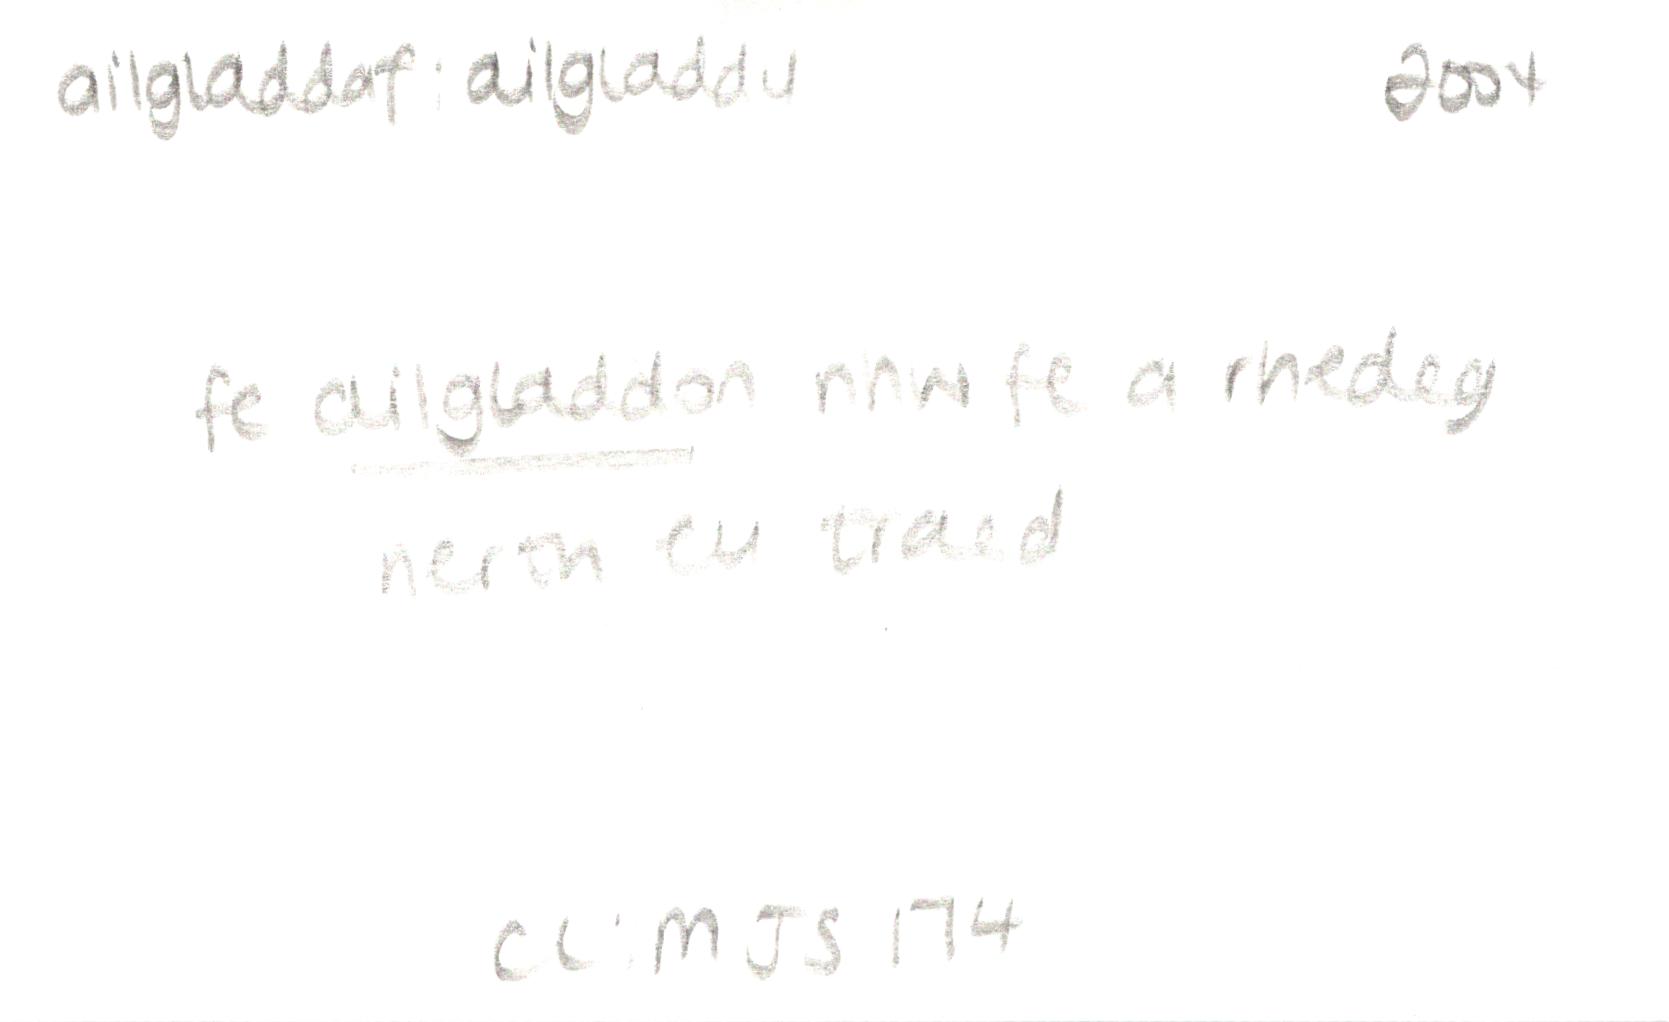 ailgladdaf : ailgladdu 2004
fe ailgladdon nhw fe a rhedeg
nerth eu traed
CLlMJS 174